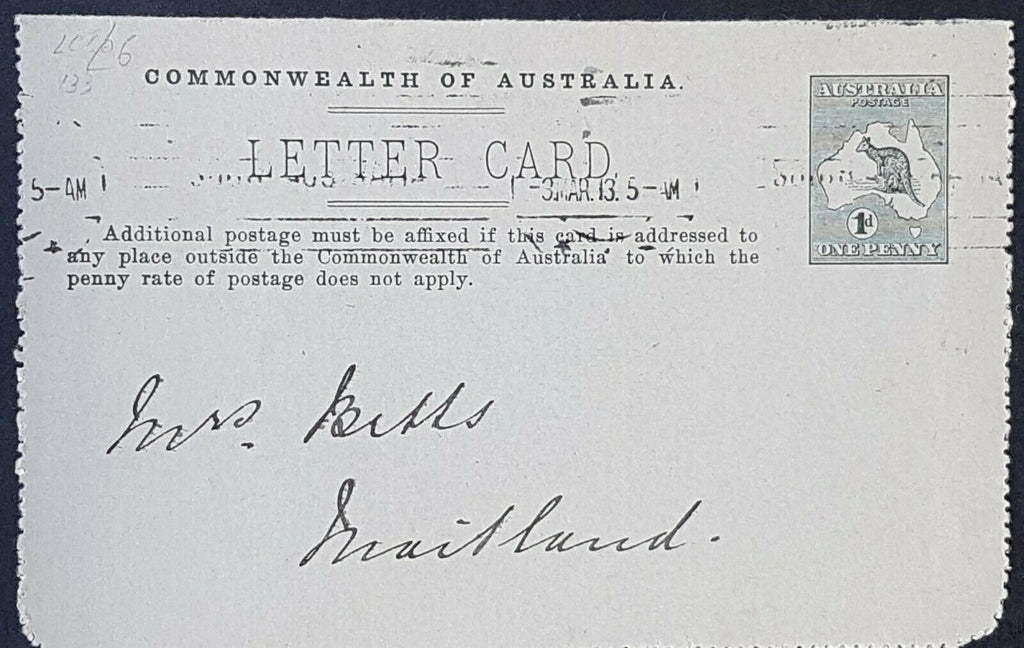 COMMONWEALTH OF AUSTRALIA.
AUSTRALIA
POSTAGE
LETTER CARD.
5-AM
-3MAR.13. 5-AM
1d
ONE PENNY
Additional postage must be affixed if this card is addressed to
any place outside the Commonwealth of Australia to which the
penny rate of postage does not apply.
Mrs. Betts
Maitland.